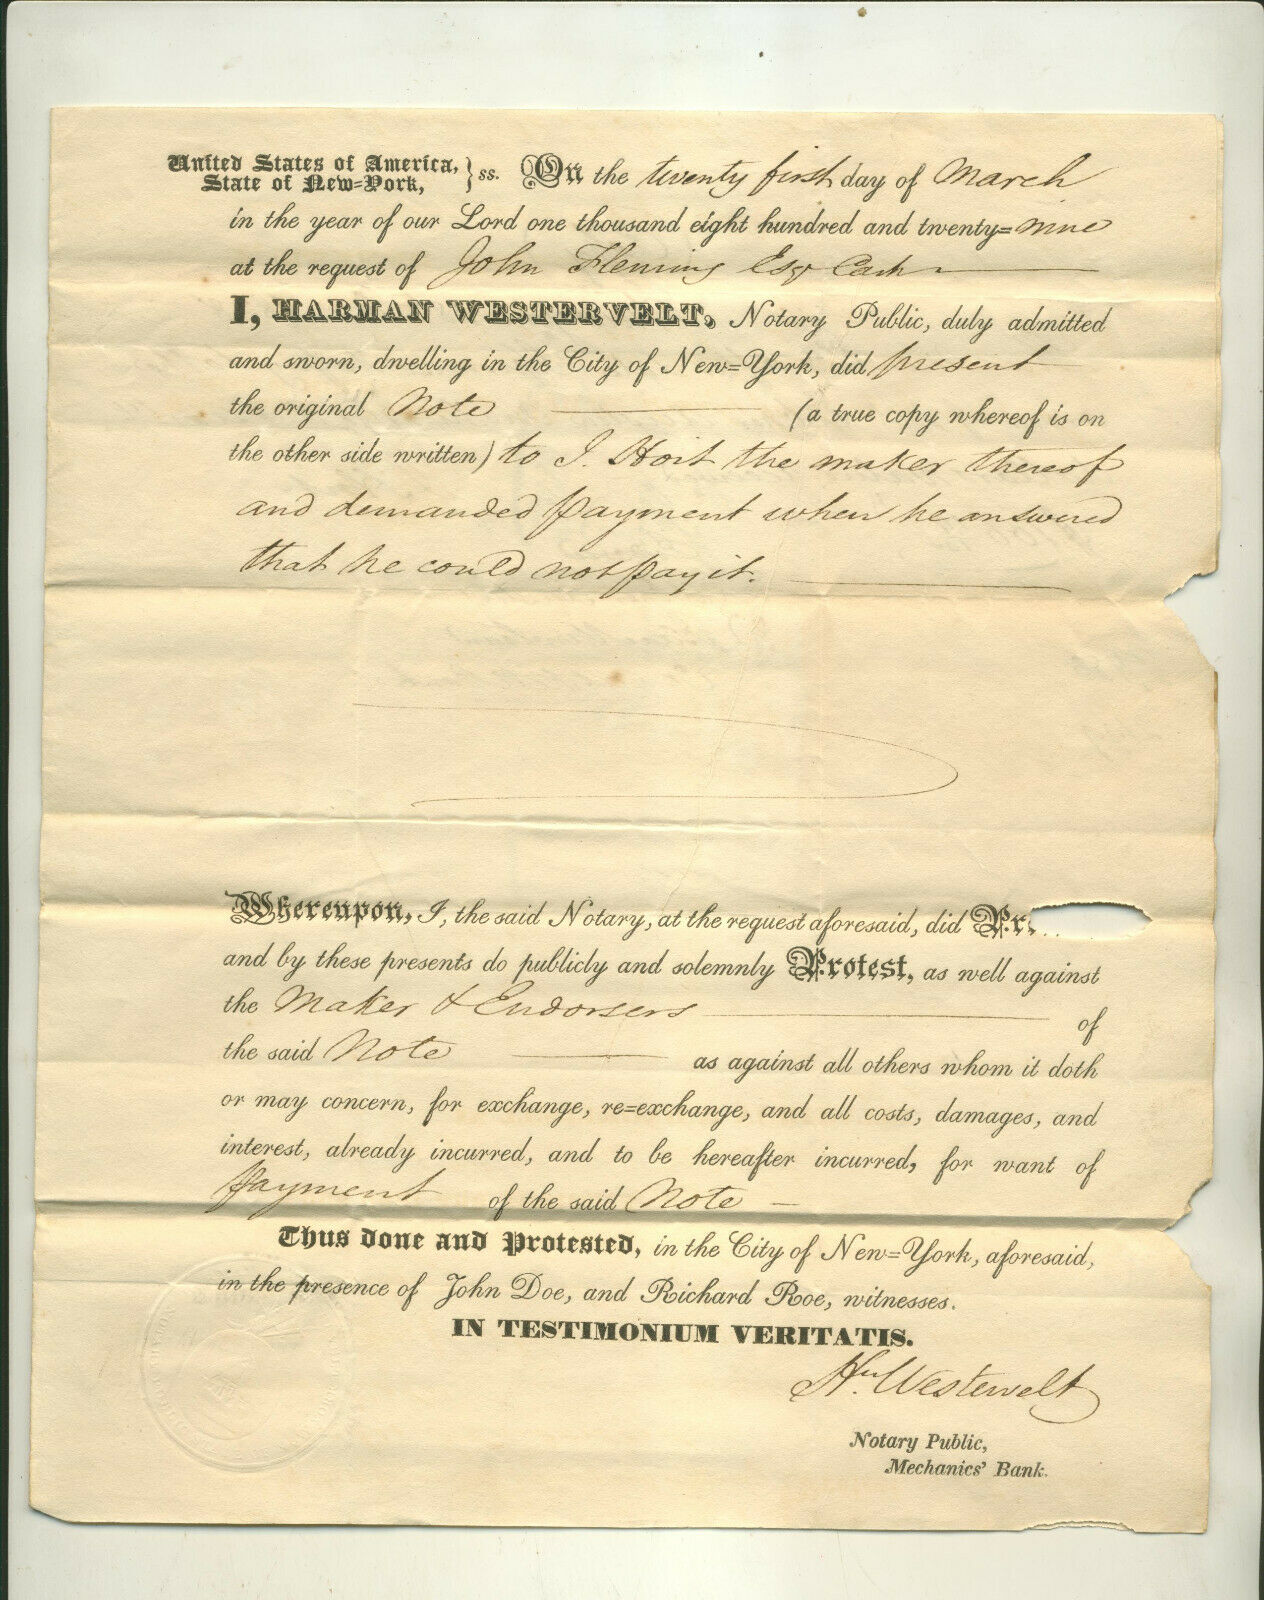 United States of America, } ss. On the twenty first day of March
State of New=York,
in the year of our Lord one thousand eight hundred and twenty=nine
at the request of John Fleming Esqr Cash
I, HARMAN WESTERVELT, Notary Public, duly admitted
and sworn, dwelling in the City of New=York, did present
the original Note (a true copy whereof is on
the other side written) to I. Hoit the maker thereof
and demanded payment when he answered
that he could not pay it.
Whereupon, I, the said Notary, at the request aforesaid, did Pr
and by these presents do publicly and solemnly Protest, as well against
the Maker & Endorsers of
the said Note as against all others whom it doth
or may concern, for exchange, re=exchange, and all costs, damages, and
interest, already incurred, and to be hereafter incurred, for want of
payment of the said Note
Thus done and Protested, in the City of New=York, aforesaid,
in the presence of John Doe, and Richard Roe, witnesses.
IN TESTIMONIUM VERITATIS.
Hn. Westervelt
Notary Public,
Mechanics' Bank.